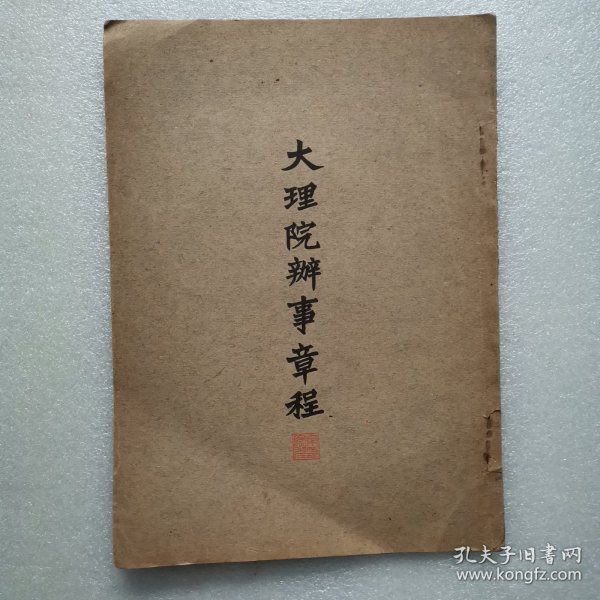 大理院辦事章程
孔夫子旧書网
www.kongfz.com